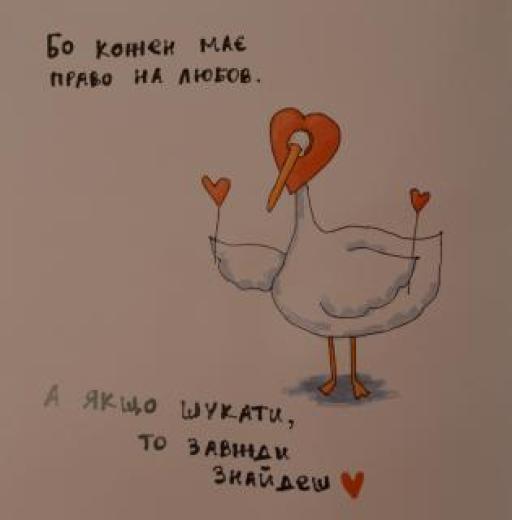 Бо кожен має
право на любов.
А якщо шукати,
то завжди
знайдеш